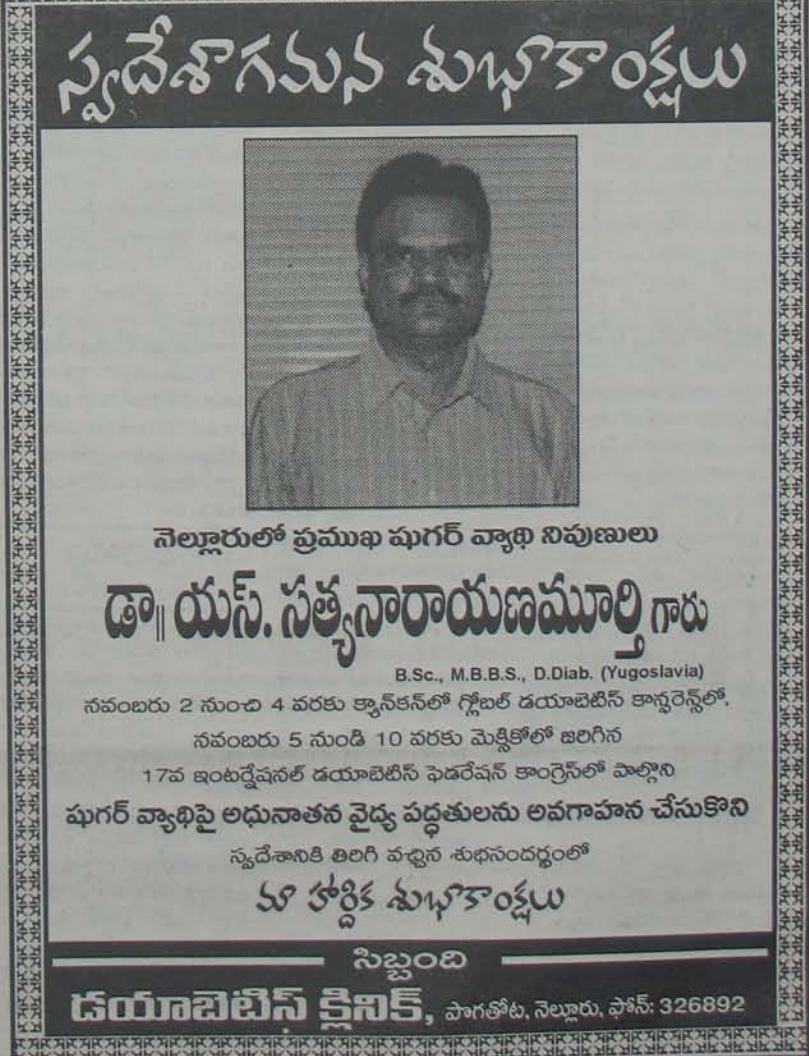 స్వదేశాగమన శుభాకాంక్షలు
నెల్లూరులో ప్రముఖ షుగర్ వ్యాధి నిపుణులు
డా|| యస్. సత్యనారాయణమూర్తి గారు
B.Sc., M.B.B.S., D.Diab. (Yugoslavia)
నవంబరు 2 నుంచి 4 వరకు క్యాన్‌కన్‌లో గ్లోబల్ డయాబెటిస్ కాన్ఫరెన్స్‌లో,
నవంబరు 5 నుండి 10 వరకు మెక్సికోలో జరిగిన
17వ ఇంటర్నేషనల్ డయాబెటిస్ ఫెడరేషన్ కాంగ్రెస్‌లో పాల్గొని
షుగర్ వ్యాధిపై అధునాతన వైద్య పద్ధతులను అవగాహన చేసుకొని
స్వదేశానికి తిరిగి వచ్చిన శుభసందర్భంలో
మా హార్దిక శుభాకాంక్షలు
సిబ్బంది
డయాబెటిస్ క్లినిక్, పొగతోట, నెల్లూరు, ఫోన్: 326892